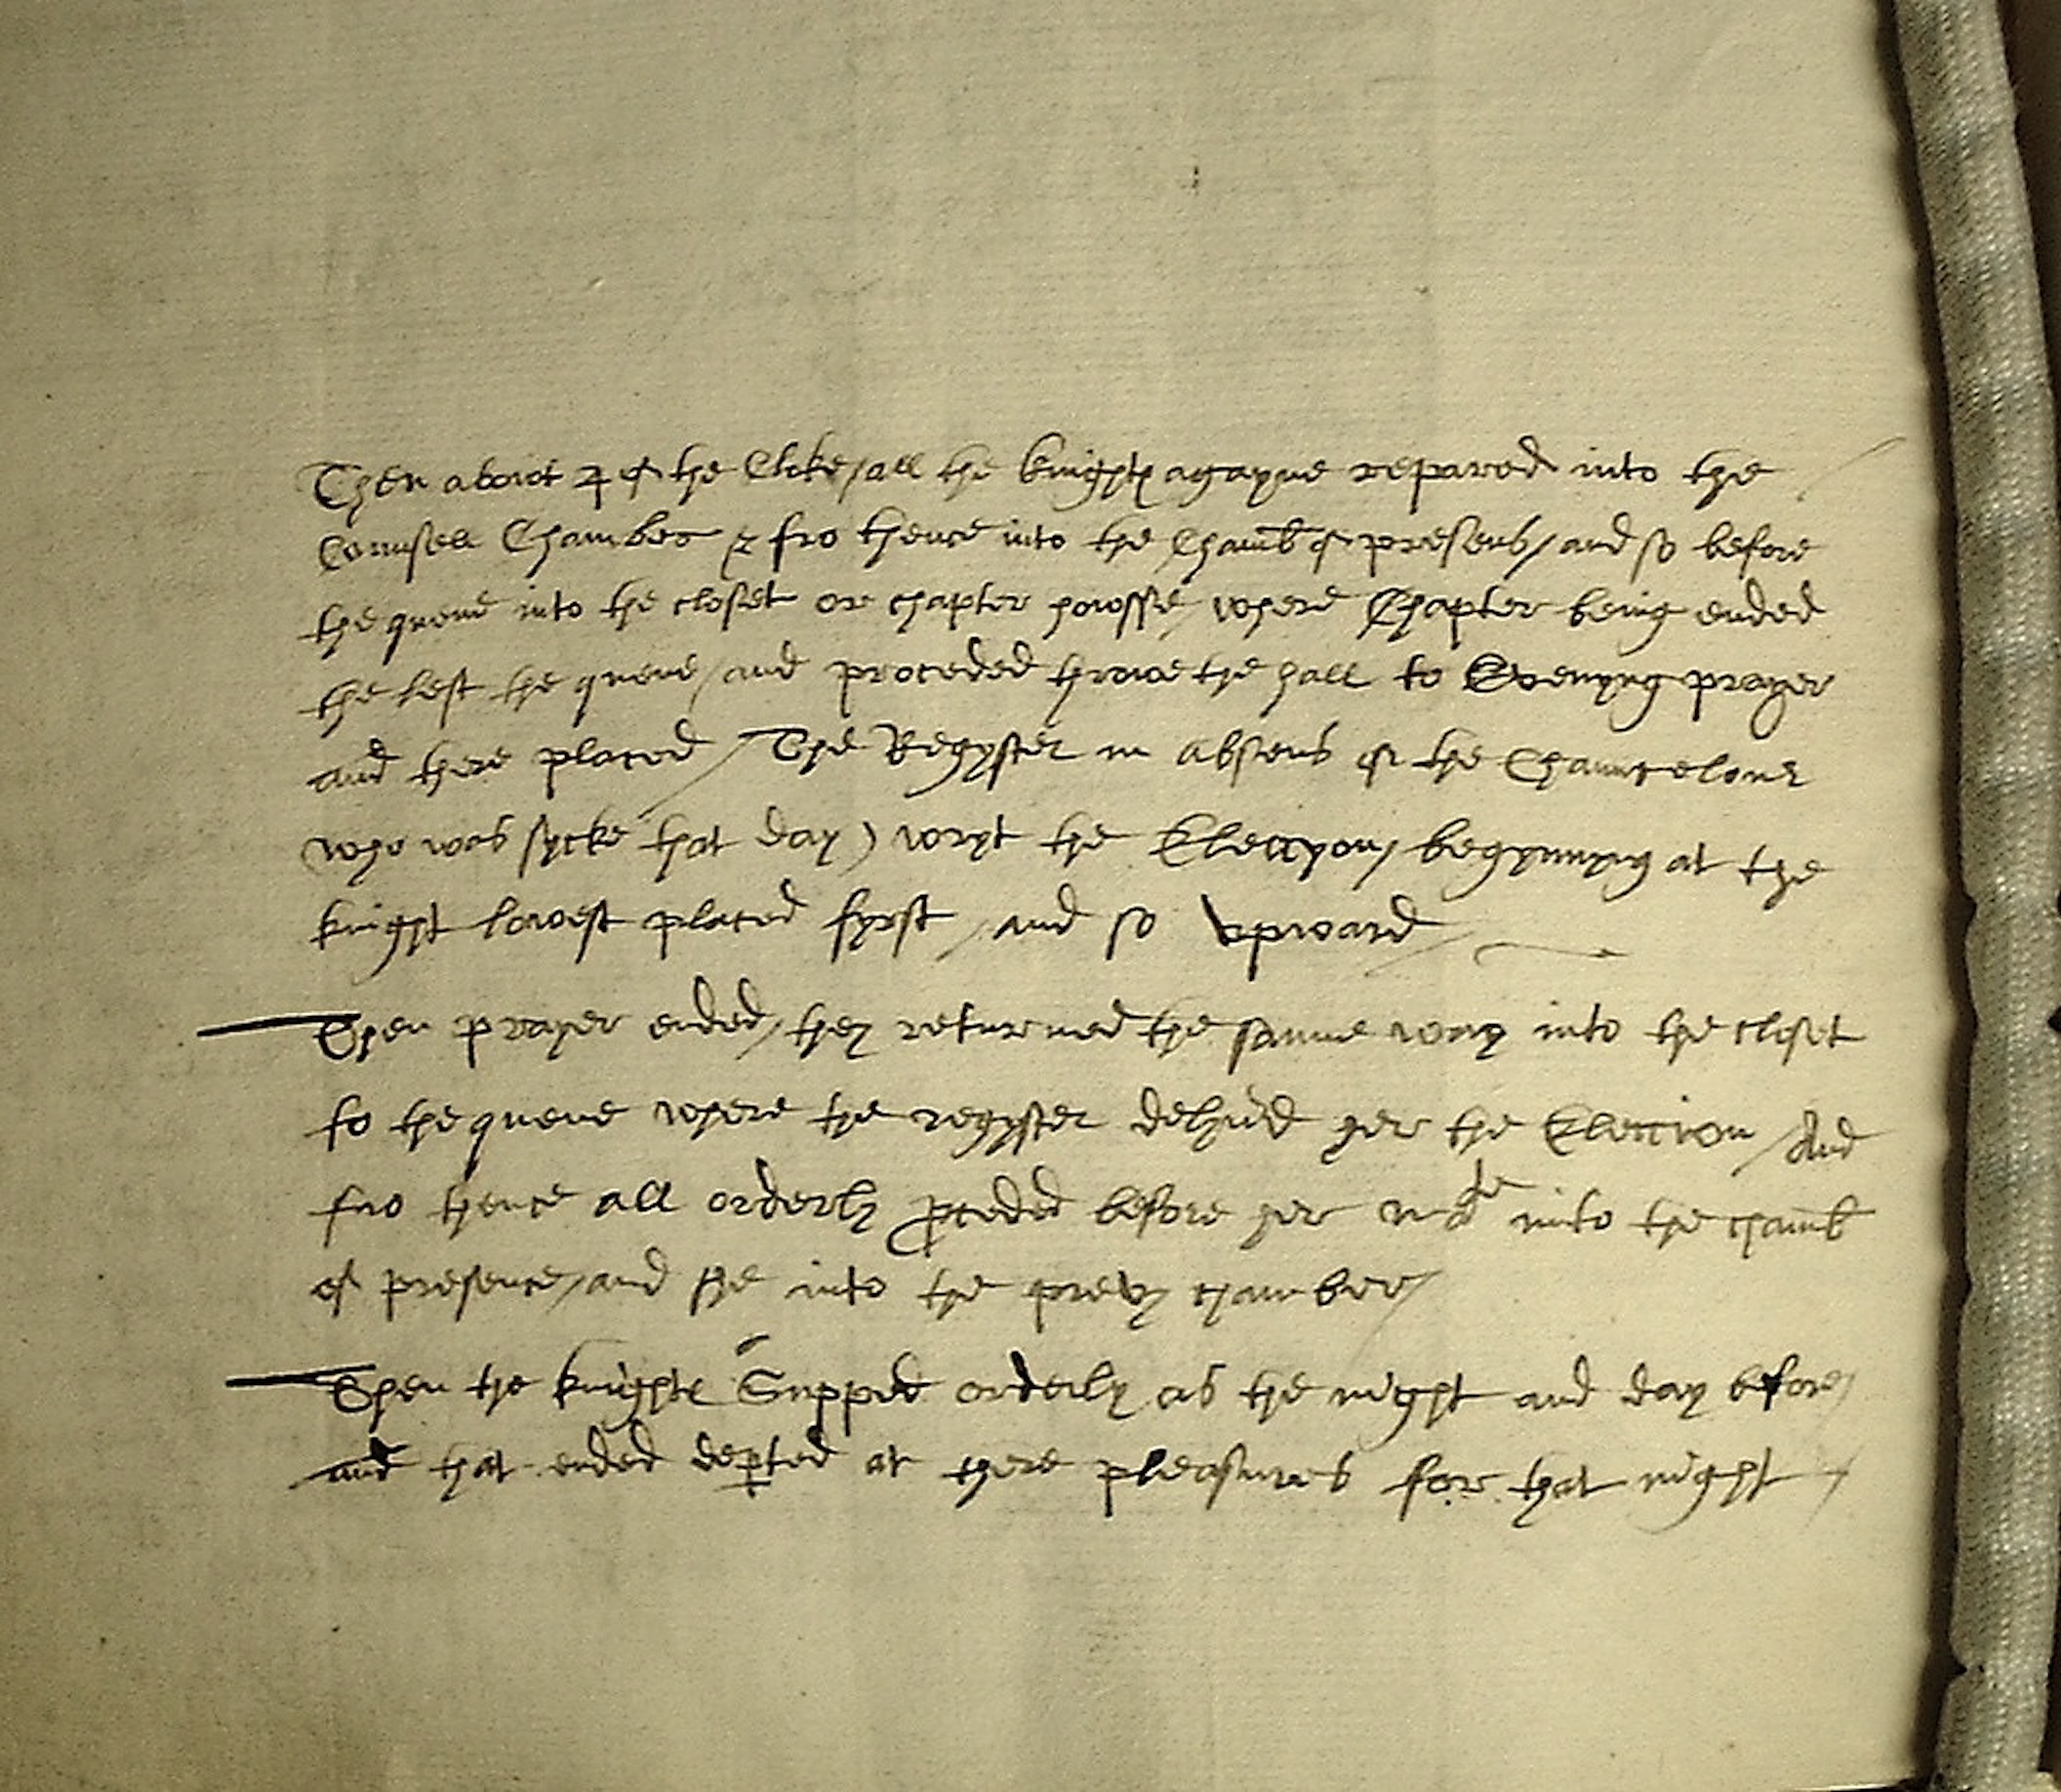 Then about 4 of the Cloke / all the knightes agayne repared into the
Counsell Chamber & fro thence into the Chamb of presens / and so before
the quene into the closet or chapter howsse / where Chapter being ended
the left the quene / and proceded throwe the hall to Evenyng prayer
and there placed / The Regyster in absens of the Chauncelour
(who was sycke that day) wryt the Eleccyon / begynnyng at the
knight lowest placed fyrst / and so vpward /
Then prayer ended / they returned the samme way into the closet
to the quene where the regyster delyu'd her the Eleccion / And
fro thence all orderly proceded before her matie into the chamb
of presence / and she into the prevy chamber /
Then the knightes Supped orderly as the night and day before /
and that ended dep'ted at there pleasures for that night /